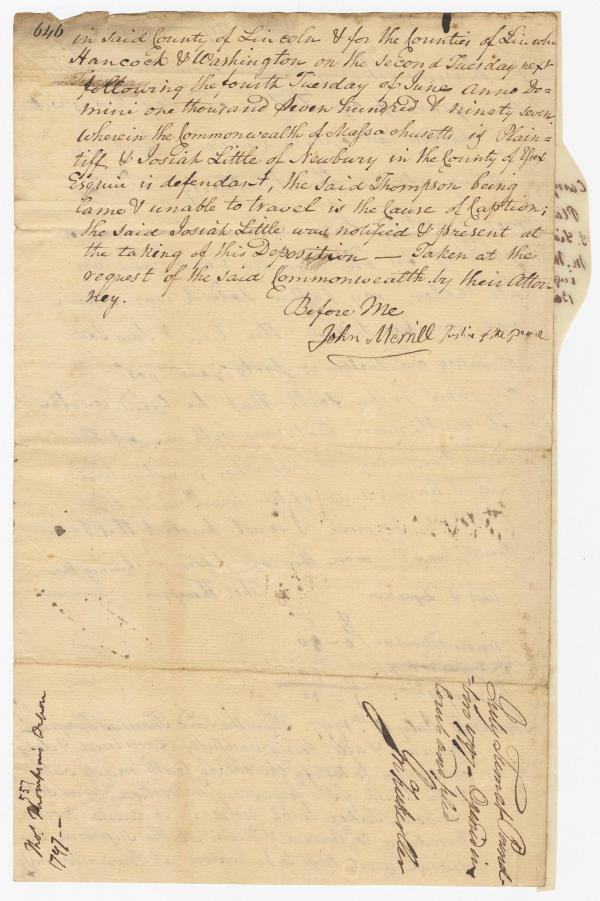 646
in said County of Lincoln & for the Counties of Lincoln
Hancock & Washington on the Second Tuesday next
following the fourth Tuesday of June anno Do-
mini one thousand Seven hundred & ninety seven,
wherein the Commonwealth of Massachusetts is Plain=
tiff & Josiah Little of Newbury in the County of Essex
Esquire is defendant, the said Thompson being
lame & unable to travel is the Cause of Caption;
the said Josiah Little was notified & present at
the taking of this Deposition — Taken at the
request of the said Commonwealth by their Attor
ney.
Before Me
John Merrill Justice of the Peace
557
Thos. Thompson's
1797—
July Term at Pownal-
=boro 1797 — Opened in
Court and filed